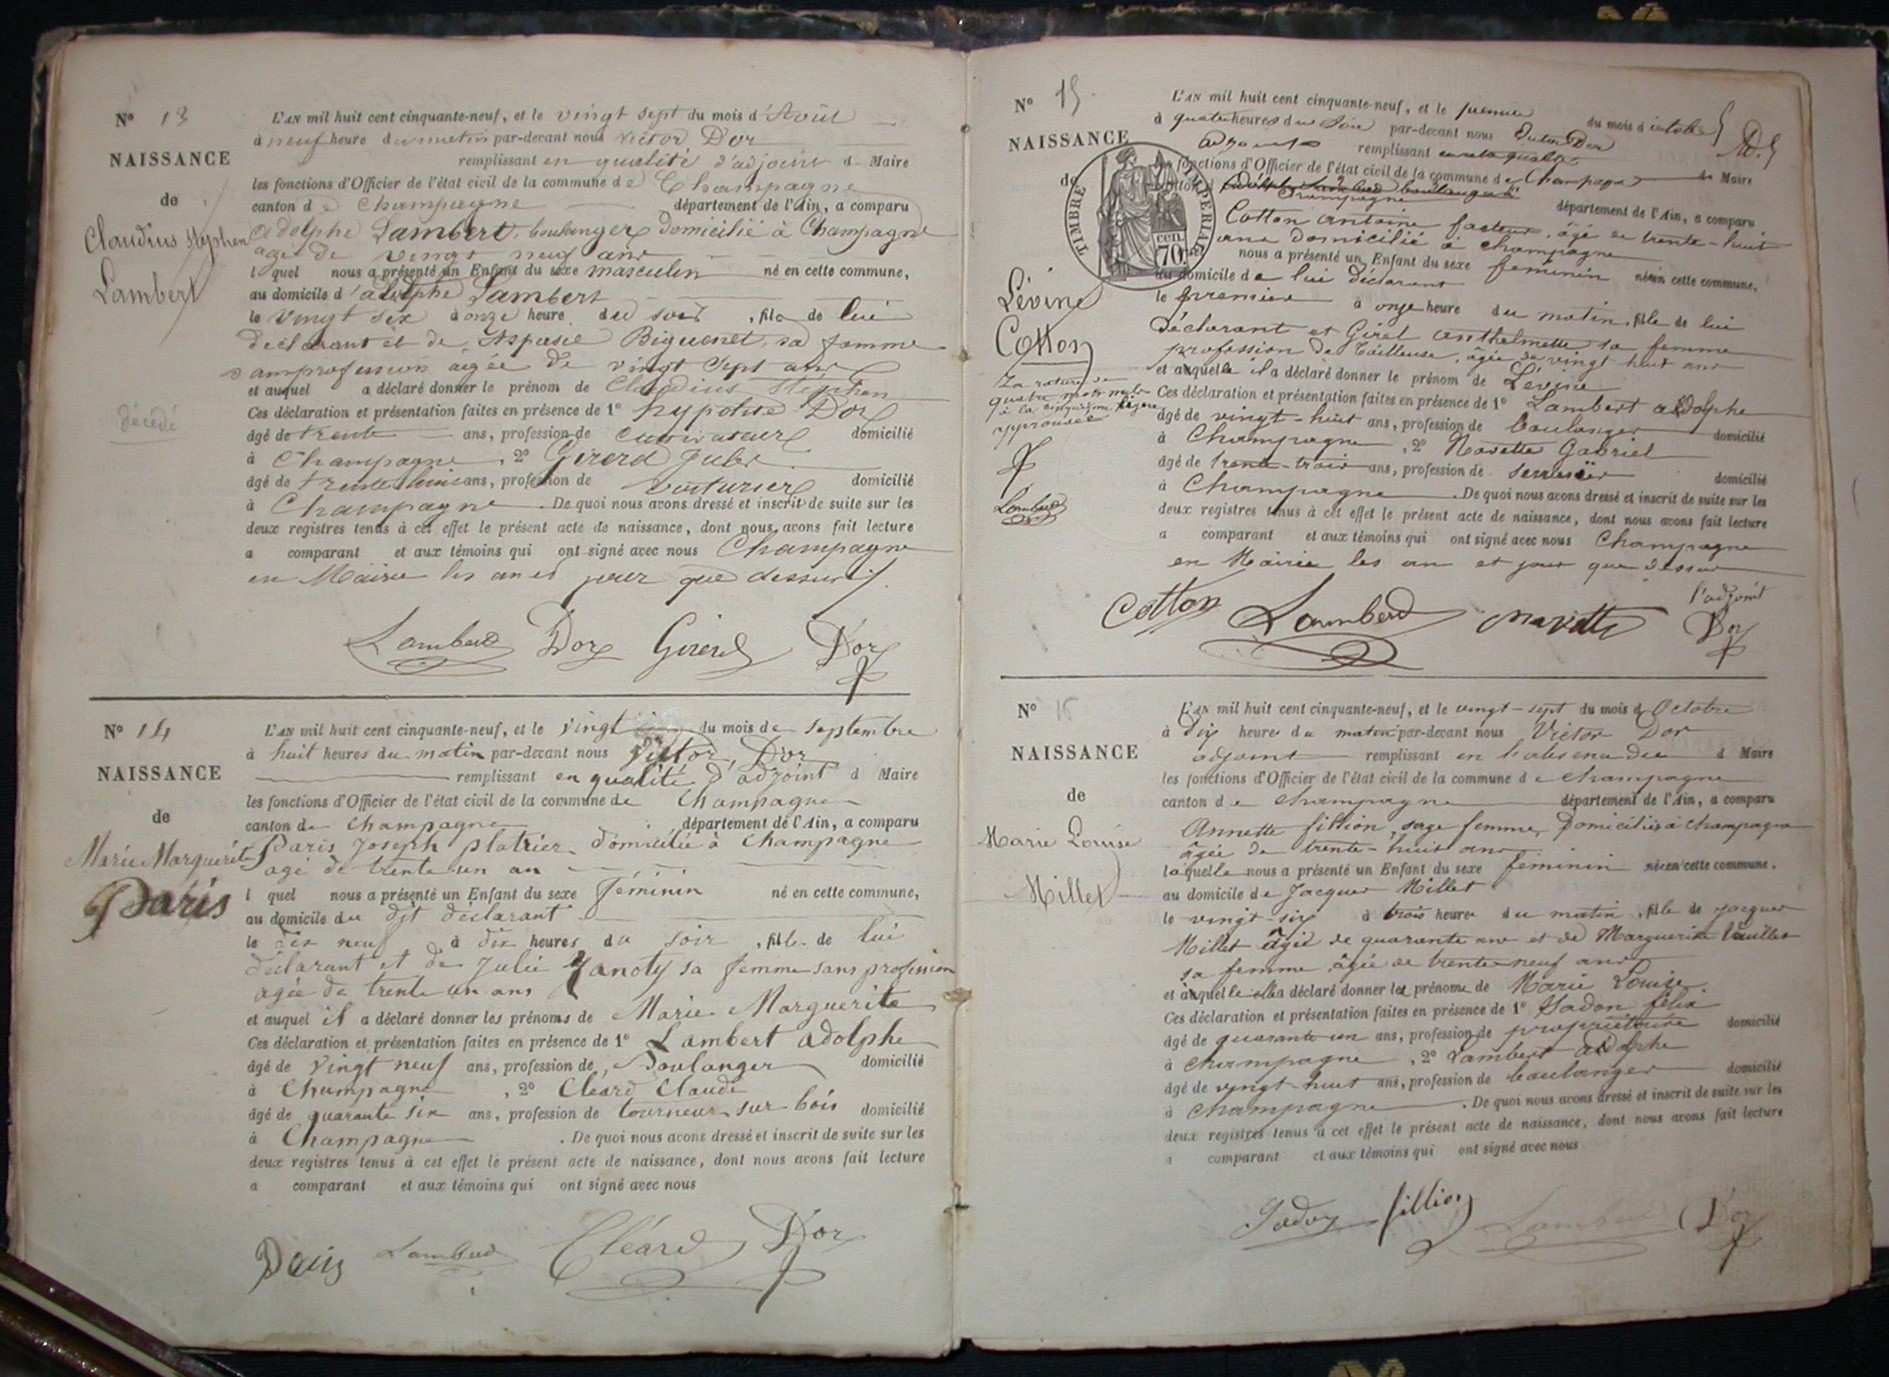 N° 13
NAISSANCE
de
Claudius Stephen
Lambert
décédé
L'AN mil huit cent cinquante-neuf, et le vingt sept du mois d'Août
à neuf heure du matin par-devant nous Victor Dor
remplissant en qualité d'adjoint d Maire
les fonctions d'Officier de l'état civil de la commune de Champagne
canton de Champagne département de l'Ain, a comparu
adolphe Lambert, boulanger domicilié à Champagne
agé de vingt neuf ans
l quel nous a présenté un Enfant du sexe masculin né en cette commune,
au domicile d'adolphe Lambert
le vingt six à onze heure du soir, fils de lui
déclarant et de Aspasie Biguenet sa femme
sans profession agée de vingt sept ans
et auquel a déclaré donner le prénom de Claudius Stéphen
Ces déclaration et présentation faites en présence de 1° hypolite Dor
âgé de trente ans, profession de cultivateur domicilié
à Champagne, 2° Girerd Jules
âgé de trente huit ans, profession de voiturier domicilié
à Champagne. De quoi nous avons dressé et inscrit de suite sur les
deux registres tenus à cet effet le présent acte de naissance, dont nous avons fait lecture
a comparant et aux témoins qui ont signé avec nous Champagne
en Mairie les an et jour que dessus
Lamberd Dor Girerd Dor
N° 14
NAISSANCE
de
Marie Marguerite
Paris
L'AN mil huit cent cinquante-neuf, et le vingt du mois de septembre
à huit heures du matin par-devant nous Victor Dor
remplissant en qualité d'adjoint d Maire
les fonctions d'Officier de l'état civil de la commune de Champagne
canton de Champagne département de l'Ain, a comparu
Paris Joseph platrier domicilié à Champagne
agé de trente un an
l quel nous a présenté un Enfant du sexe féminin né en cette commune,
au domicile du dit déclarant
le dix neuf à dix heures du soir, fille de lui
déclarant et de Julie Janoty sa femme sans profession
agée de trente un ans
et auquel il a déclaré donner les prénoms de Marie Marguerite
Ces déclaration et présentation faites en présence de 1° Lambert adolphe
âgé de vingt neuf ans, profession de Boulanger domicilié
à Champagne, 2° Cléard Claude
âgé de quarante six ans, profession de tourneur sur bois domicilié
à Champagne. De quoi nous avons dressé et inscrit de suite sur les
deux registres tenus à cet effet le présent acte de naissance, dont nous avons fait lecture
a comparant et aux témoins qui ont signé avec nous
Paris Lamberd Cléard Dor
N° 15
NAISSANCE
de
TIMBRE IMPERIAL
70 cen
Lévine
Cotton
La rature de
quatre mots nuls
à la cinquième ligne
approuvée
Lamberd
L'AN mil huit cent cinquante-neuf, et le premier du mois d'octobre
à quatre heures du soir par-devant nous Victor Dor
adjoint remplissant en sa qualité d Maire
les fonctions d'Officier de l'état civil de la commune de Champagne
canton d Champagne département de l'Ain, a comparu
Cotton antoine facteur, âgé de trente-huit
ans domicilié à Champagne
quel nous a présenté un Enfant du sexe feminin né en cette commune,
au domicile de lui déclarant
le premier à onze heure du matin, fille de lui
déclarant et Girel Anthelmette sa femme
profession de tailleuse, âgée de vingt huit ans
et auquelle il a déclaré donner le prénom de Lévine
Ces déclaration et présentation faites en présence de 1° Lambert adolphe
âgé de vingt-huit ans, profession de boulanger domicilié
à Champagne, 2° Navette Gabriel
âgé de trente-trois ans, profession de serrurier domicilié
à Champagne. De quoi nous avons dressé et inscrit de suite sur les
deux registres tenus à cet effet le présent acte de naissance, dont nous avons fait lecture
a comparant et aux témoins qui ont signé avec nous Champagne
en Mairie les an et jour que dessus
l'adjoint
Cotton Lamberd Navette Dor
N° 16
NAISSANCE
de
Marie Louise
Millet
L'AN mil huit cent cinquante-neuf, et le vingt-sept du mois d Octobre
à dix heures du matin par-devant nous Victor Dor
adjoint remplissant en d Maire
les fonctions d'Officier de l'état civil de la commune de Champagne
canton de Champagne département de l'Ain, a comparu
Annette fillion, sage femme, Domiciliée à Champagne
âgée de trente-huit ans
laquelle nous a présenté un Enfant du sexe feminin née en cette commune,
au domicile de Jacques Millet
le vingt-six à trois heures du matin, fille de Jacques
Millet âgé de quarante ans et de Marguerite
sa femme âgée de trente-neuf ans
et auquelle elle a déclaré donner les prénoms de Marie Louise
Ces déclaration et présentation faites en présence de 1° félix
âgé de quarante un ans, profession de propriétaire domicilié
à Champagne, 2° Lambert adolphe
âgé de vingt-huit ans, profession de boulanger domicilié
à Champagne. De quoi nous avons dressé et inscrit de suite sur les
deux registres tenus à cet effet le présent acte de naissance, dont nous avons fait lecture
a comparant et aux témoins qui ont signé avec nous
fillion Lamberd Dor